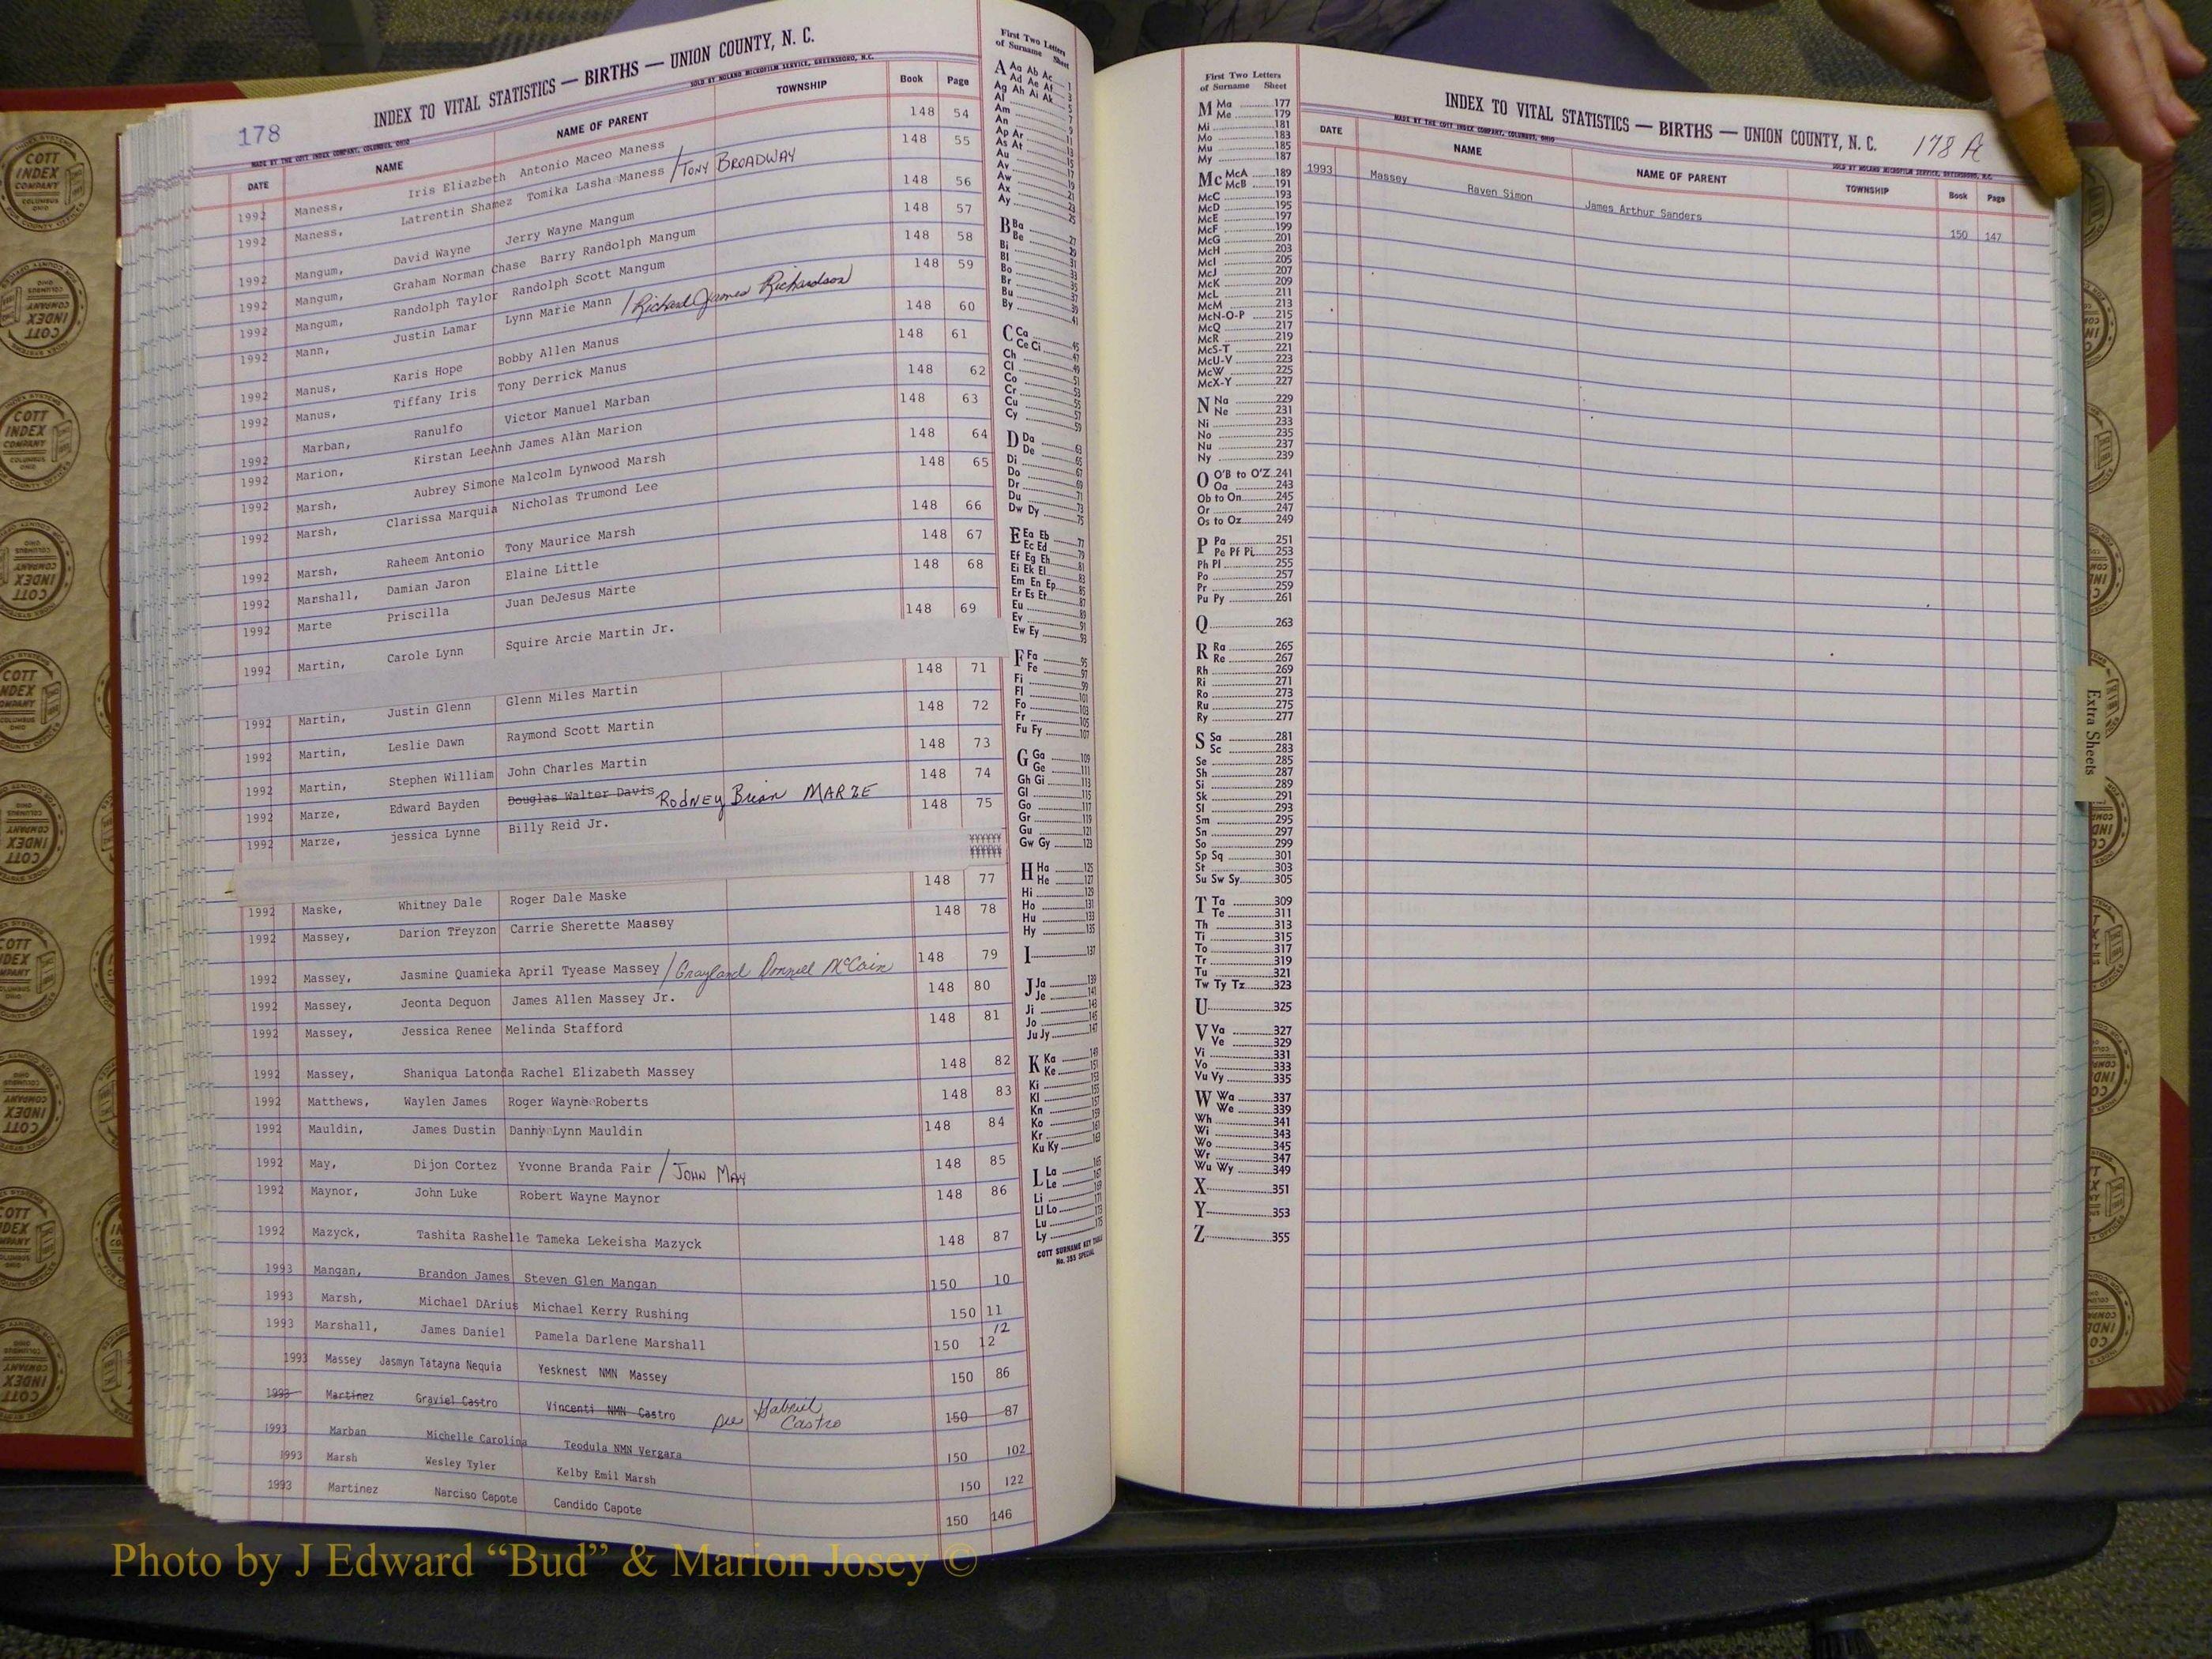 178
INDEX TO VITAL STATISTICS — BIRTHS — UNION COUNTY, N. C.
MADE BY THE COTT INDEX COMPANY, COLUMBUS, OHIO SOLD BY NOLAND MICROFILM SERVICE, GREENSBORO, N.C.
DATE NAME NAME OF PARENT TOWNSHIP Book Page
1992 Maness, Iris Eliazbeth Antonio Maceo Maness 148 54
1992 Maness, Latrentin Shamez Tomika Lasha Maness / TONY BROADWAY 148 55
1992 Mangum, David Wayne Jerry Wayne Mangum 148 56
1992 Mangum, Graham Norman Chase Barry Randolph Mangum 148 57
1992 Mangum, Randolph Taylor Randolph Scott Mangum 148 58
1992 Mann, Justin Lamar Lynn Marie Mann / Richard James Richardson 148 59
1992 Manus, Karis Hope Bobby Allen Manus 148 60
1992 Manus, Tiffany Iris Tony Derrick Manus 148 61
1992 Marban, Ranulfo Victor Manuel Marban 148 62
1992 Marion, Kirstan LeeAnn James Alan Marion 148 63
1992 Marsh, Aubrey Simone Malcolm Lynwood Marsh 148 64
1992 Marsh, Clarissa Marquia Nicholas Trumond Lee 148 65
1992 Marsh, Raheem Antonio Tony Maurice Marsh 148 66
1992 Marshall, Damian Jaron Elaine Little 148 67
1992 Marte Priscilla Juan DeJesus Marte 148 68
1992 Martin, Carole Lynn Squire Arcie Martin Jr. 148 69
1992 Martin, Justin Glenn Glenn Miles Martin 148 71
1992 Martin, Leslie Dawn Raymond Scott Martin 148 72
1992 Martin, Stephen William John Charles Martin 148 73
1992 Marze, Edward Bayden Douglas Walter Davis Rodney Brian MARZE 148 74
1992 Marze, jessica Lynne Billy Reid Jr. 148 75
1992 Maske, Whitney Dale Roger Dale Maske 148 77
1992 Massey, Darion Treyzon Carrie Sherette Massey 148 78
1992 Massey, Jasmine Quamieka April Tyease Massey / Grayland Donnel McCain 148 79
1992 Massey, Jeonta Dequon James Allen Massey Jr. 148 80
1992 Massey, Jessica Renee Melinda Stafford 148 81
1992 Massey, Shaniqua Latonda Rachel Elizabeth Massey 148 82
1992 Matthews, Waylen James Roger Wayne Roberts 148 83
1992 Mauldin, James Dustin Danny Lynn Mauldin 148 84
1992 May, Dijon Cortez Yvonne Branda Fair / JOHN MAY 148 85
1992 Maynor, John Luke Robert Wayne Maynor 148 86
1992 Mazyck, Tashita Rashelle Tameka Lekeisha Mazyck 148 87
1993 Mangan, Brandon James Steven Glen Mangan 150 10
1993 Marsh, Michael DArius Michael Kerry Rushing 150 11
1993 Marshall, James Daniel Pamela Darlene Marshall 150 12 12
1993 Massey Jasmyn Tatayna Nequia Yesknest NMN Massey 150 86
1993 Martinez Graviel Castro Vincenti NMN Castro see Gabriel Castro 150 87
1993 Marban Michelle Carolina Teodula NMN Vergara 150 102
1993 Marsh Wesley Tyler Kelby Emil Marsh 150 122
1993 Martinez Narciso Capote Candido Capote 150 146
First Two Letters
of Surname Sheet
A Aa Ab Ac 1
Ad Ae Af 3
Ag Ah Ai Ak 5
Al 7
Am 9
An 11
Ap Ar 13
As At 15
Au 17
Av 19
Aw 21
Ax 23
Ay 25
B Ba 27
Be 29
Bi 31
Bl 33
Bo 35
Br 37
Bu 39
By 41
C Ca 45
Ce Ci 47
Ch 49
Cl 51
Co 53
Cr 55
Cu 57
Cy 59
D Da 63
De 65
Di 67
Do 69
Dr 71
Du 73
Dw Dy 75
E Ea Eb 77
Ec Ed 79
Ef Eg Eh 81
Ei Ek El 83
Em En Ep 85
Er Es Et 87
Eu 89
Ev 91
Ew Ey 93
F Fa 95
Fe 97
Fi 99
Fl 101
Fo 103
Fr 105
Fu Fy 107
G Ga 109
Ge 111
Gh Gi 113
Gl 115
Go 117
Gr 119
Gu 121
Gw Gy 123
H Ha 125
He 127
Hi 129
Ho 131
Hu 133
Hy 135
I 137
J Ja 139
Je 141
Ji 143
Jo 145
Ju Jy 147
K Ka 149
Ke 151
Ki 153
Kl 155
Kn 157
Ko 159
Kr 161
Ku Ky 163
L La 165
Le 167
Li 169
Ll Lo 171
Lu 173
Ly 175
COTT SURNAME KEY TABLE
No. 355 SPECIAL
First Two Letters
of Surname Sheet
M Ma 177
Me 179
Mi 181
Mo 183
Mu 185
My 187
Mc McA 189
McB 191
McC 193
McD 195
McE 197
McF 199
McG 201
McH 203
McI 205
McJ 207
McK 209
McL 211
McM 213
McN-O-P 215
McQ 217
McR 219
McS-T 221
McU-V 223
McW 225
McX-Y 227
N Na 229
Ne 231
Ni 233
No 235
Nu 237
Ny 239
O O'B to O'Z 241
Oa 243
Ob to On 245
Or 247
Os to Oz 249
P Pa 251
Pe Pf Pi 253
Ph Pl 255
Po 257
Pr 259
Pu Py 261
Q 263
R Ra 265
Re 267
Rh 269
Ri 271
Ro 273
Ru 275
Ry 277
S Sa 281
Sc 283
Se 285
Sh 287
Si 289
Sk 291
Sl 293
Sm 295
Sn 297
So 299
Sp Sq 301
St 303
Su Sw Sy 305
T Ta 309
Te 311
Th 313
Ti 315
To 317
Tr 319
Tu 321
Tw Ty Tz 323
U 325
V Va 327
Ve 329
Vi 331
Vo 333
Vu Vy 335
W Wa 337
We 339
Wh 341
Wi 343
Wo 345
Wr 347
Wu Wy 349
X 351
Y 353
Z 355
INDEX TO VITAL STATISTICS — BIRTHS — UNION COUNTY, N. C. 178 A
MADE BY THE COTT INDEX COMPANY, COLUMBUS, OHIO SOLD BY NOLAND MICROFILM SERVICE, GREENSBORO, N.C.
DATE NAME NAME OF PARENT TOWNSHIP Book Page
1993 Massey Raven Simon James Arthur Sanders 150 147
Extra Sheets
COTT INDEX COMPANY
Photo by J Edward “Bud” & Marion Josey ©